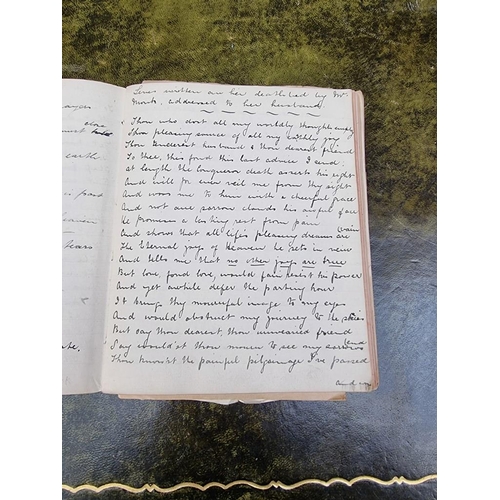 Lines written on her deathbed by Mrs
Monk, addressed to her husband.
Thou who dost all my worldly thoughts employ
Thou pleasing source of all my earthly joy
Thou tenderest husband & thou dearest friend
To thee, this fond this last adieu I send.
At length the Conqueror death asserts his right
And will for ever veil me from thy sight
And woos me to him with a cheerful grace
And not one sorrow clouds his awful face
He promises a lasting rest from pain
And shows that all life's pleasing dreams are vain
The Eternal joys of Heaven he sets in view
And tells me that no other joys are true
But love, fond love, would fain resist his power
And yet awhile defer the parting hour
It brings thy mournful image to my eyes
And would obstruct my journey to the skies
But say thou dearest, thou unwearied friend
Say would'st thou mourn to see my sorrows end
Thou know'st the painful pilgrimage I've passed
And
ayers
close
earth
past
eaven
tears